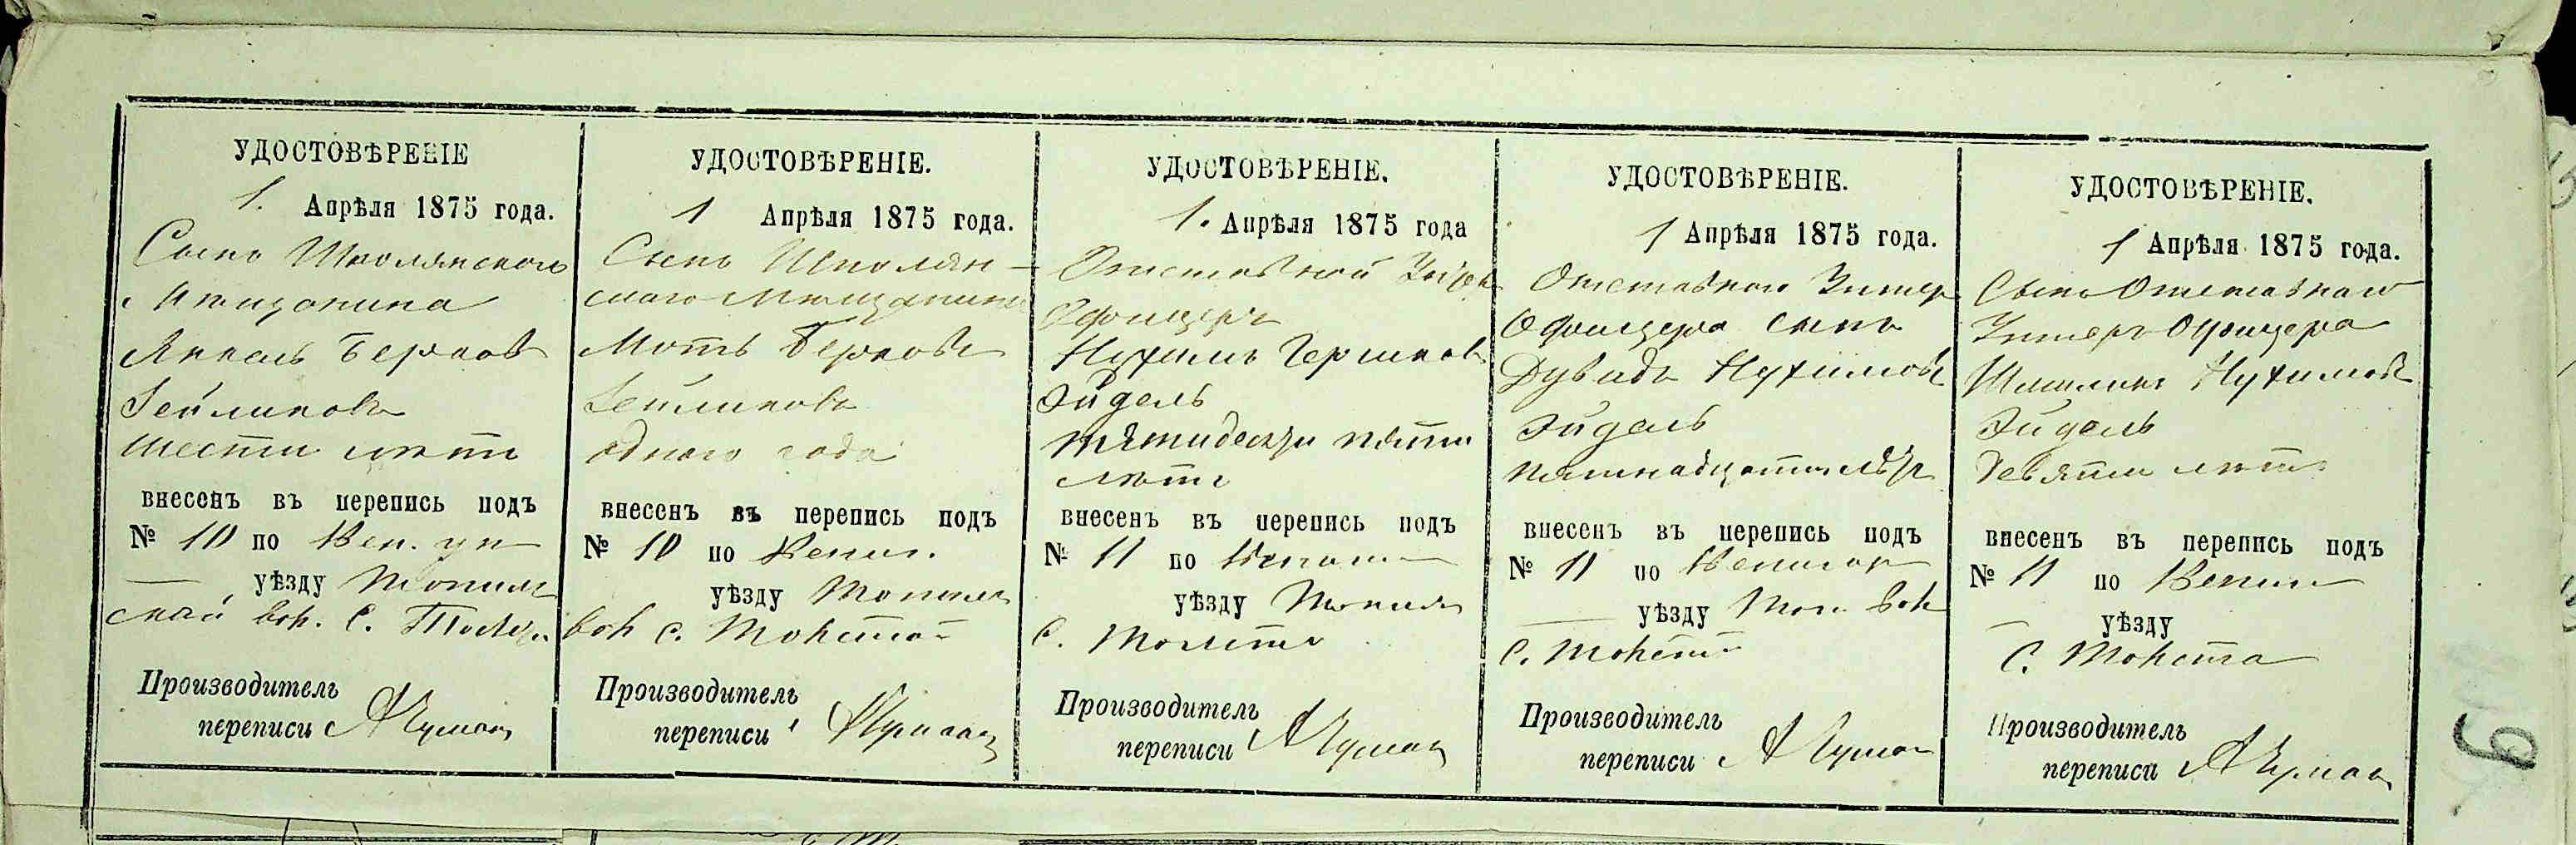 УДОСТОВѢРЕНІЕ
1. Апрѣля 1875 года.
Сынъ Шполянскаго
Мѣщанина
Янкель Берков
Зейликовъ
шести лѣтъ
внесенъ въ перепись подъ
№ 10 по Звен. уп
уѣзду Топиль
ской вол. с. Толст
Производитель
переписи АЧуман
УДОСТОВѢРЕНІЕ.
1 Апрѣля 1875 года.
Сынъ Шполян-
скаго Мѣщанина
Мотъ Берковъ
Зейликовъ
одного года
внесенъ въ перепись подъ
№ 10 по Звениг.
уѣзду Топил
вол с. Толстой
Производитель
переписи АЧуман
УДОСТОВѢРЕНІЕ.
1. Апрѣля 1875 года
Отставной Унтер
Офицеръ
Нухимъ Гершков
Эйдель
пятидесяти пяти
лѣтъ
внесенъ въ перепись подъ
№ 11 по
уѣзду Топил
с. Толста
Производитель
переписи АЧуман
УДОСТОВѢРЕНІЕ.
1 Апрѣля 1875 года.
Отставнаго Унтер
Офицера сынъ
Дувидъ Нухимовъ
Эйдель
пятнадцати лѣт
внесенъ въ перепись подъ
№ 11 по Звенигор
уѣзду Топ. вол
с. Толст
Производитель
переписи АЧуман
УДОСТОВѢРЕНІЕ.
1 Апрѣля 1875 года.
Сынъ Отставнаго
Унтеръ Офицера
Шмиликъ Нухимовъ
Эйдель
девяти лѣтъ
внесенъ въ перепись подъ
№ 11 по Звениг
уѣзду
с. Толста
Производитель
переписи АЧуман